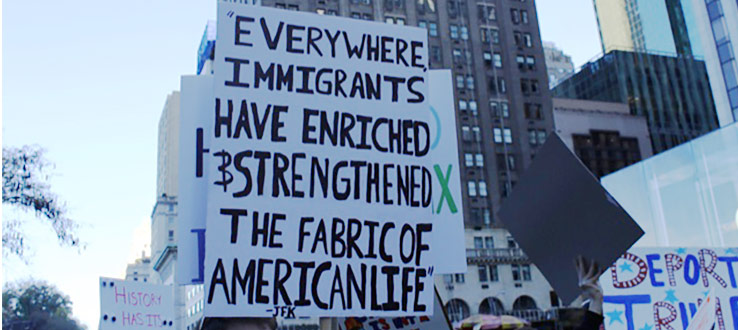 "EVERYWHERE,
IMMIGRANTS
HAVE ENRICHED
&STRENGTHENED
THE FABRIC OF
AMERICAN LIFE"
-JFK-
HISTORY
HAS ITS
DEPORT